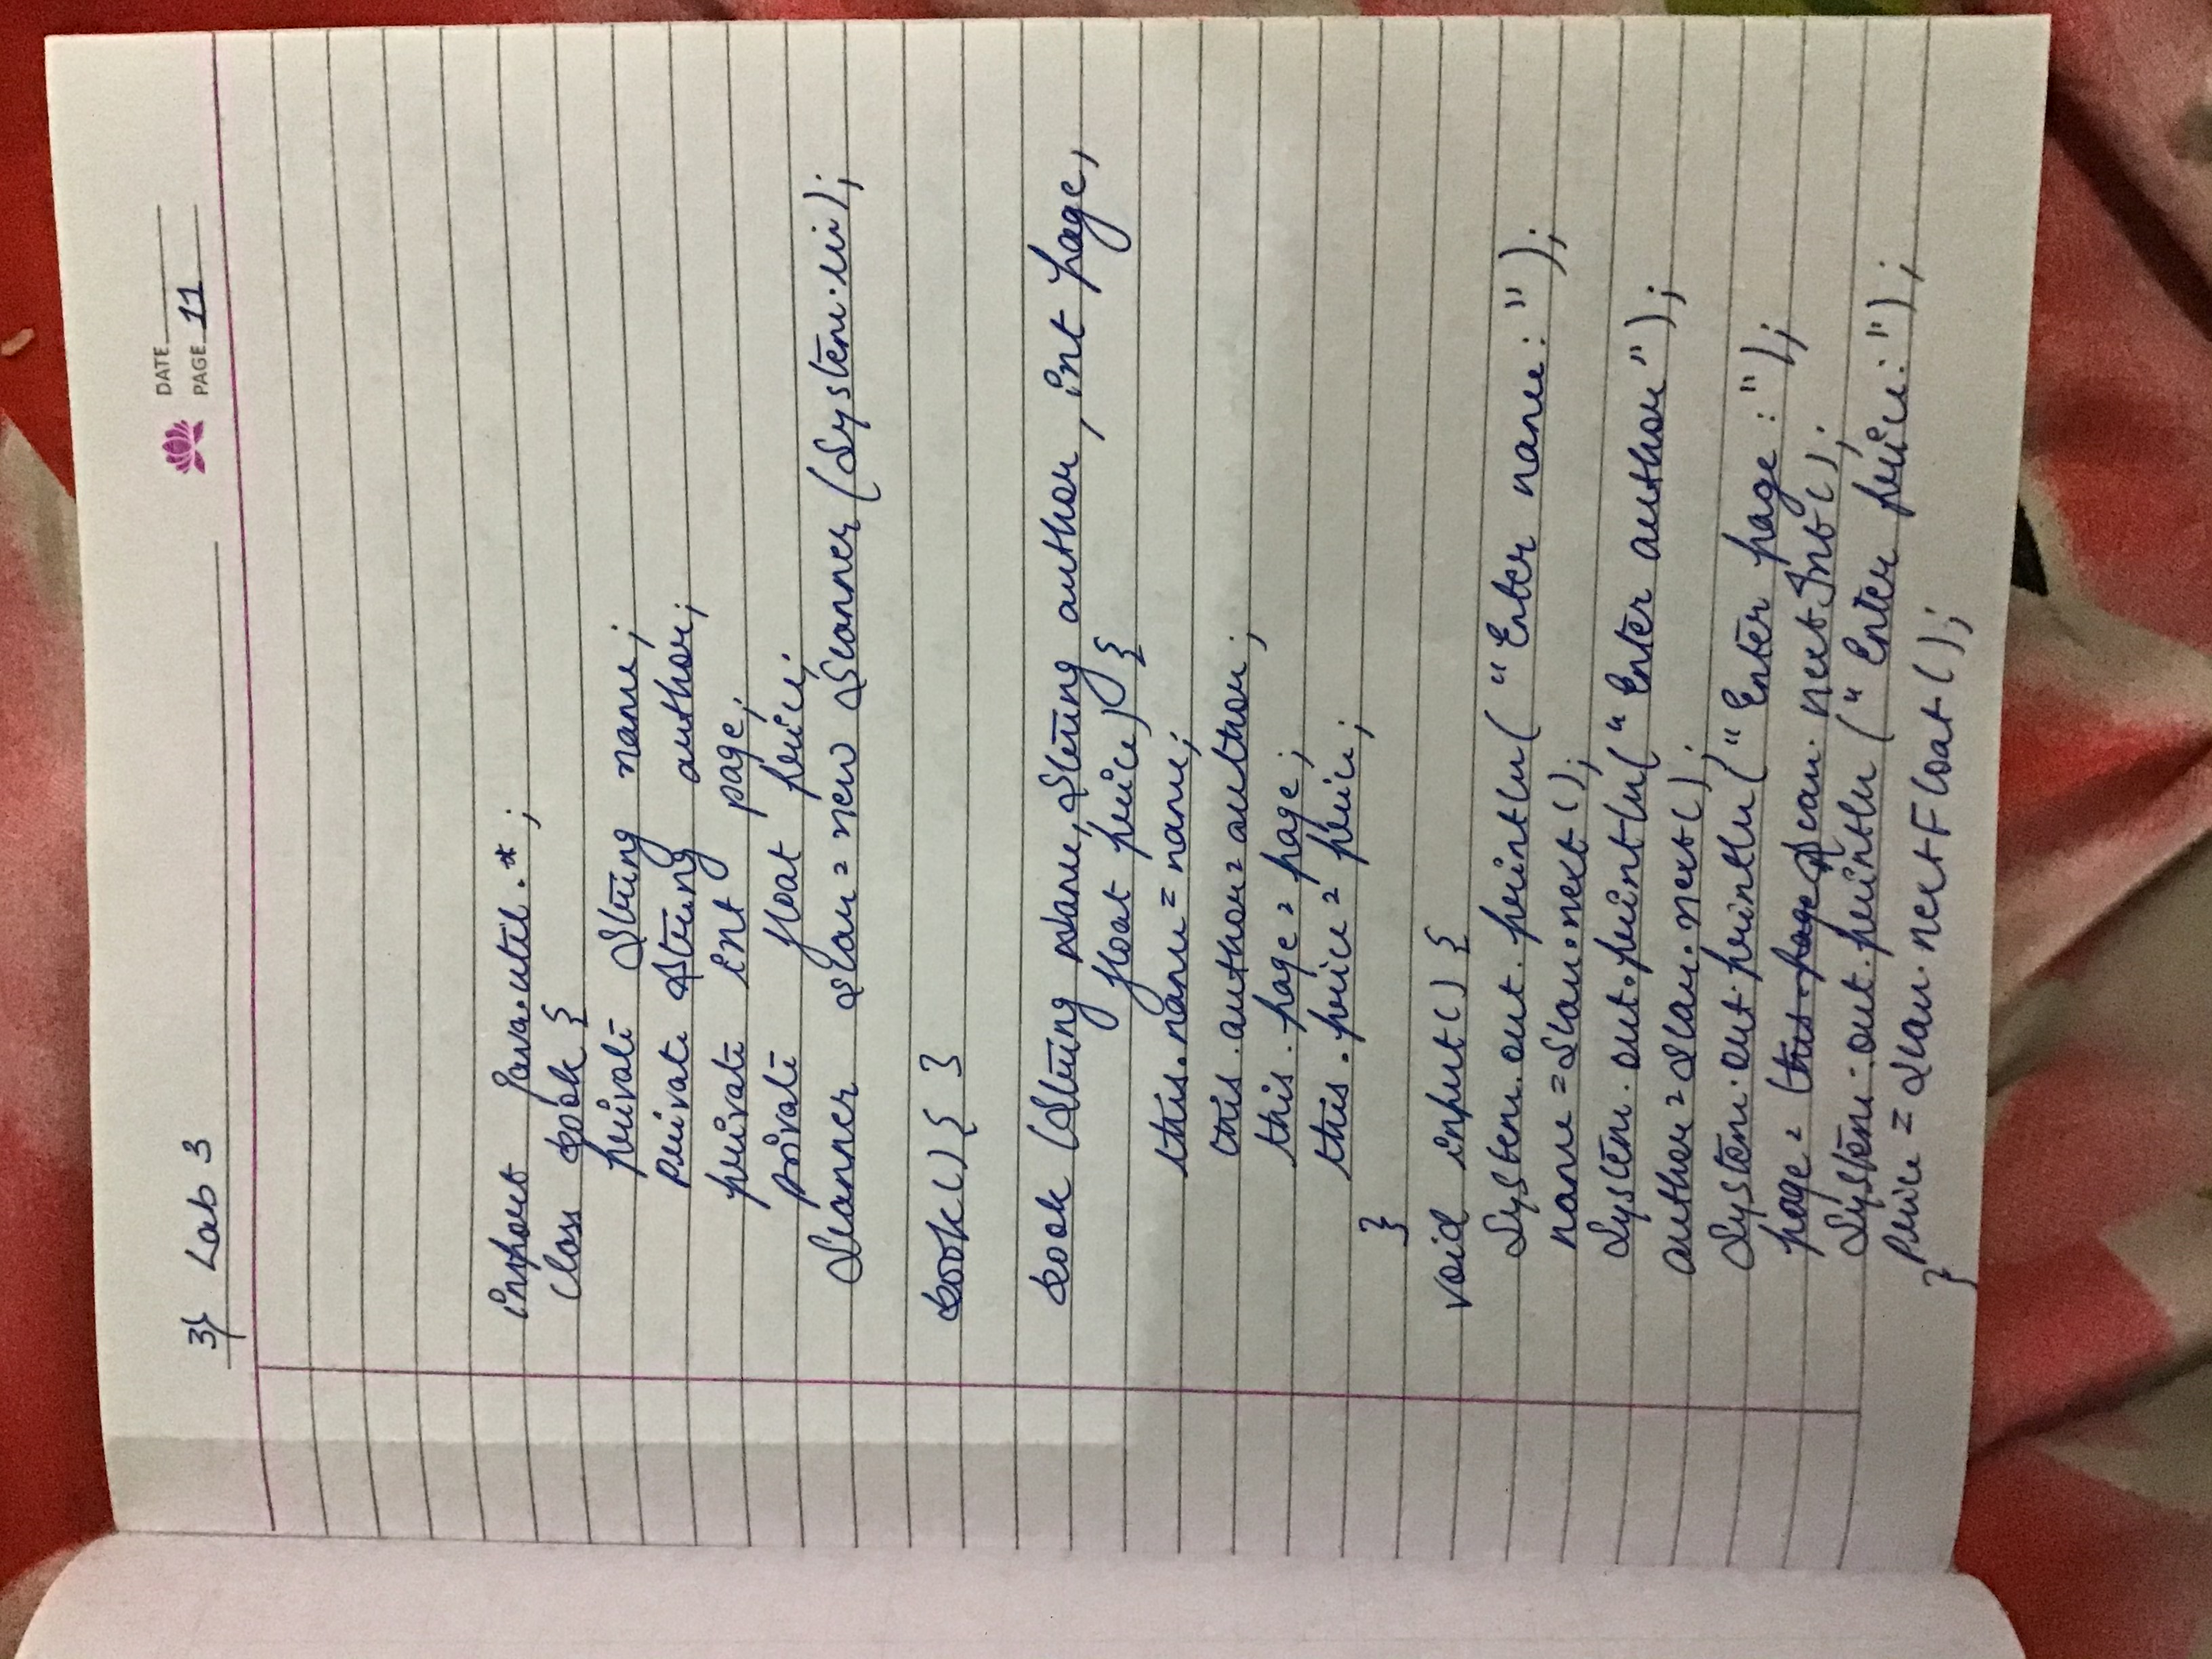 3} Lab 3
DATE
PAGE 11
import java.util.*;
class book {
private String name;
private String author;
private int page;
private float price;
Scanner scan = new Scanner (System.in);
book() { }
book (String name, String author, int page,
float price) {
this.name = name;
this.author = author;
this.page = page;
this.price = price;
}
void input() {
System.out.println( "Enter name: " );
name = scan.next();
System.out.println( "Enter author" );
author = scan.next();
System.out.println( "Enter page :" );
page = this.page scan.nextInt();
System.out.println ( "Enter price: " );
price = scan.nextFloat();
}